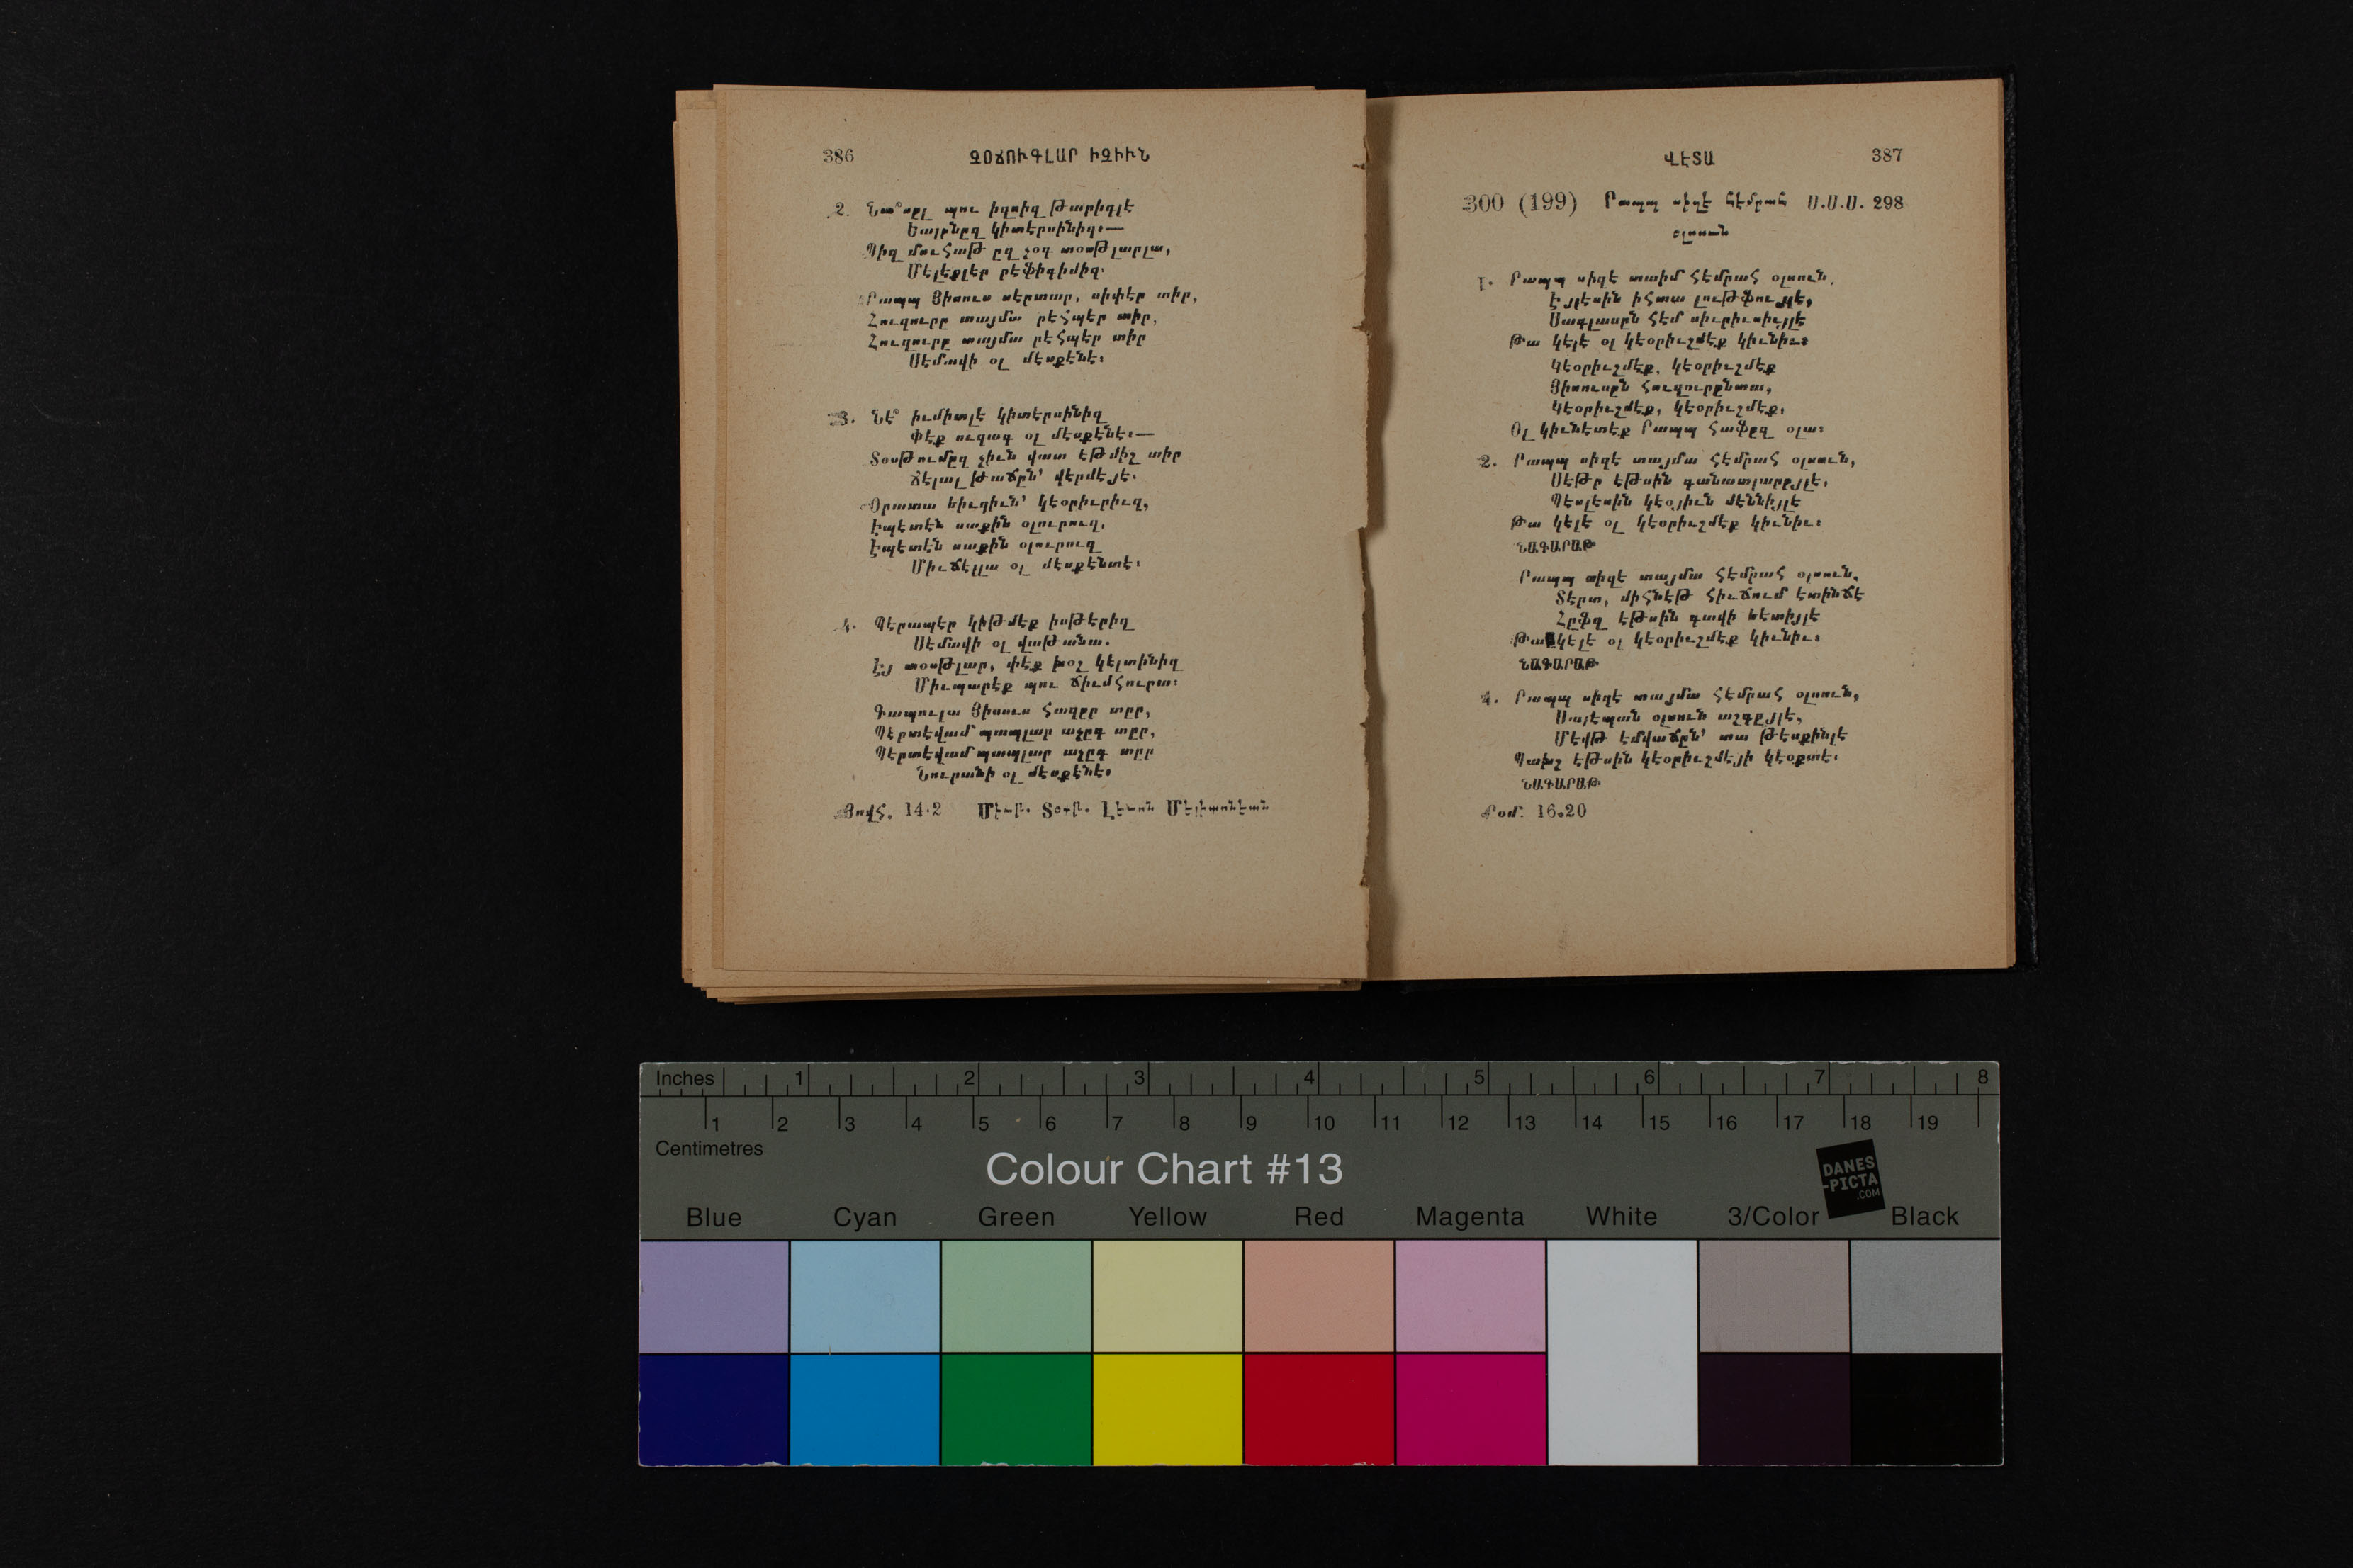 386 ՉՕՃՈՒԳԼԱՐ ԻՉԻՒՆ
2. Նա՞սըլ պու իզսիզ թարիգլէ
Եալընըզ կիտէրսինիզ։—
Պիզ մուհտաթ ըզ չօգ տօսթլարլա,
Մէլէքլէր րէֆիգիմիզ։
Րապպ Յիսուս սէրտար, սիփէր տիր,
Հուզուրը տայմա րէհպէր տիր,
Հուզուրը տայմա րէհպէր տիր
Սէմավի օլ մէսքէնէ։
3. Նէ՞ իւմիտլէ կիտէրսինիզ
Փէք ուզագ օլ մէսքէնէ։—
Տօսթումըզ չիւն վատ էթմիշ տիր
Ճէլալ թաճըն՝ վէրմէյէ։
Օրատա եիւզիւն՝ կէօրիւրիւզ,
Էպէտէն սաքին օլուրուզ,
Էպէտէն սաքին օլուրուզ
Միւճէլլա օլ մէսքէնտէ։
4. Պէրապէր կիթմէք իսթէրիզ
Սէմավի օլ վաթանա.
Էյ տօսթլար, փէք խօշ կէլտինիզ
Միւպարէք պու ճիւմհուրա։
Գապուլա Յիսուս հազըր տըր,
Պէրտէվամ պապլար աչըգ տըր,
Պէրտէվամ պապլար աչըգ տըր
Նուրանի օլ մէսքէնէ։
Յովհ. 14.2 Լէւոն
ՎԷՏԱ 387
300 (199) Րապպ սիզէ հէմրահ Ս.Ս.Ս. 298
օլսուն
1. Րապպ սիզէ տաիմ հէմրահ օլսուն,
Էյլէսին իհտա լութֆույլէ,
Սագլասըն հէմ սիւրիւսիւյլէ
Թա կէլէ օլ կէօրիւշմէք կիւնիւ։
Կէօրիւշմէք, կէօրիւշմէք
Յիսուսըն հուզուրընտա,
Կէօրիւշմէք, կէօրիւշմէք,
Օլ կիւնէտէք Րապպ հաֆըզ օլա։
2. Րապպ սիզէ տայմա հէմրահ օլսուն,
Սէթր էթսին գանատլարըյլէ,
Պէսլէսին կէօյիւն մէննիյլէ
Թա կէլէ օլ կէօրիւշմէք կիւնիւ։
ՆԱԳԱՐԱԹ
Րապպ սիզէ տայմա հէմրահ օլսուն,
Տէրտ, միհնէթ հիւճում էտինճէ
Հըֆզ էթսին գավի եէտիյլէ
Թա կէլէ օլ կէօրիւշմէք կիւնիւ։
ՆԱԳԱՐԱԹ
4. Րապպ սիզէ տայմա հէմրահ օլսուն,
Սայէպան օլսուն աշգըյլէ,
Մէվթ էմվաճըն՝ տա թէսքինլէ
Պախշ էթսին կէօրիւշմէյի կէօքտէ։
ՆԱԳԱՐԱԹ
Րօմ. 16.20
Inches 1 2 3 4 5 6 7 8
1 2 3 4 5 6 7 8 9 10 11 12 13 14 15 16 17 18 19
Centimetres
Colour Chart #13
DANES
-PICTA
.COM
Blue Cyan Green Yellow Red Magenta White 3/Color Black